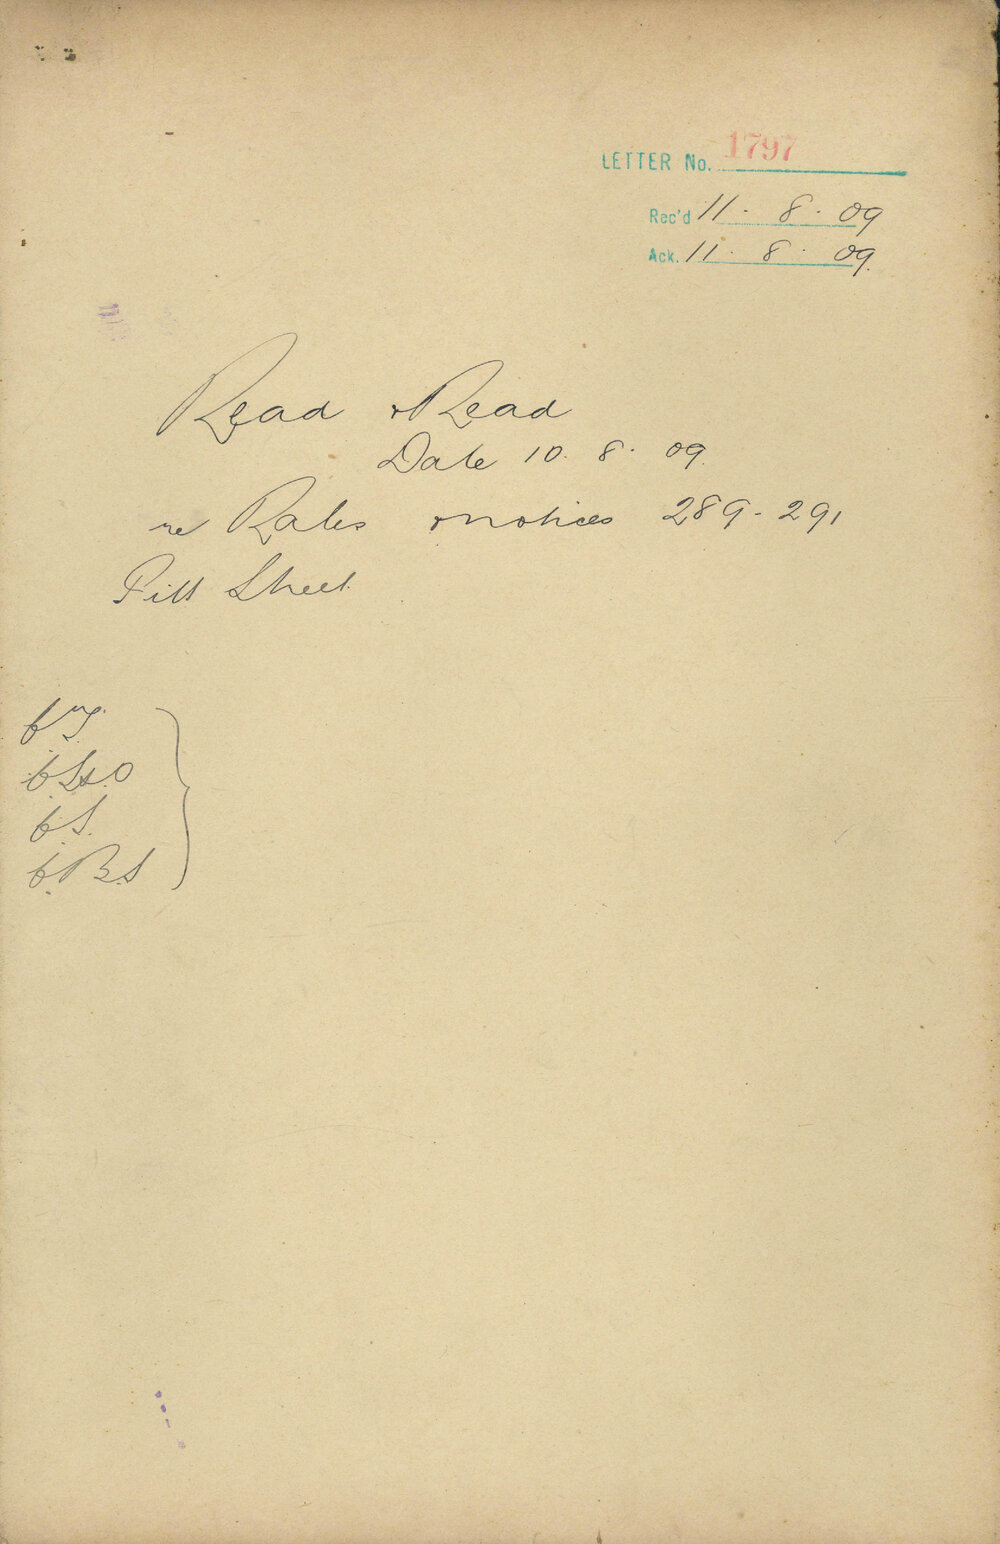 LETTER No. 1797
Rec'd 11. 8. 09
Ack. 11. 8. 09.
Read & Read
Date 10. 8. 09.
re Rates & notices 289-291
Pitt Street
C.T.
C.S.
C.B.S